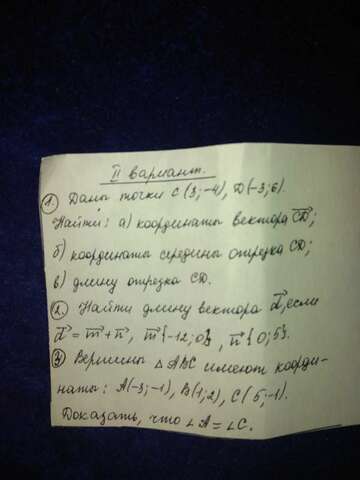 II вариант.
1. Даны точки C(3;-4), D(-3;6).
Найти: а) координаты вектора CD;
б) координаты середины отрезка CD;
в) длину отрезка CD.
2. Найти длину вектора d, если
d = m + n, m{-12;0}, n{0;5}.
3. Вершины △ABC имеют коорди-
наты: A(-3;-1), B(1;2), C(5;-1).
Доказать, что ∠A = ∠C.